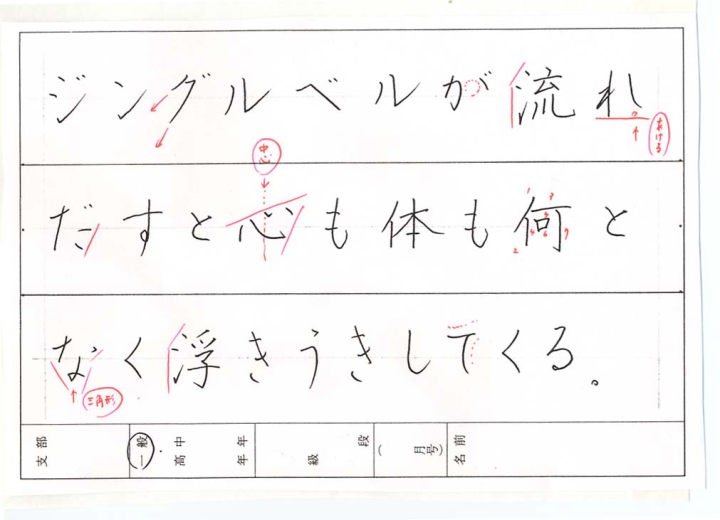 ジングルベルが流れ
あける
中心
だすと心も体も何と
なく浮きうきしてくる。
三角形
支部 一般 高中 年年 級段 (月号) 名前